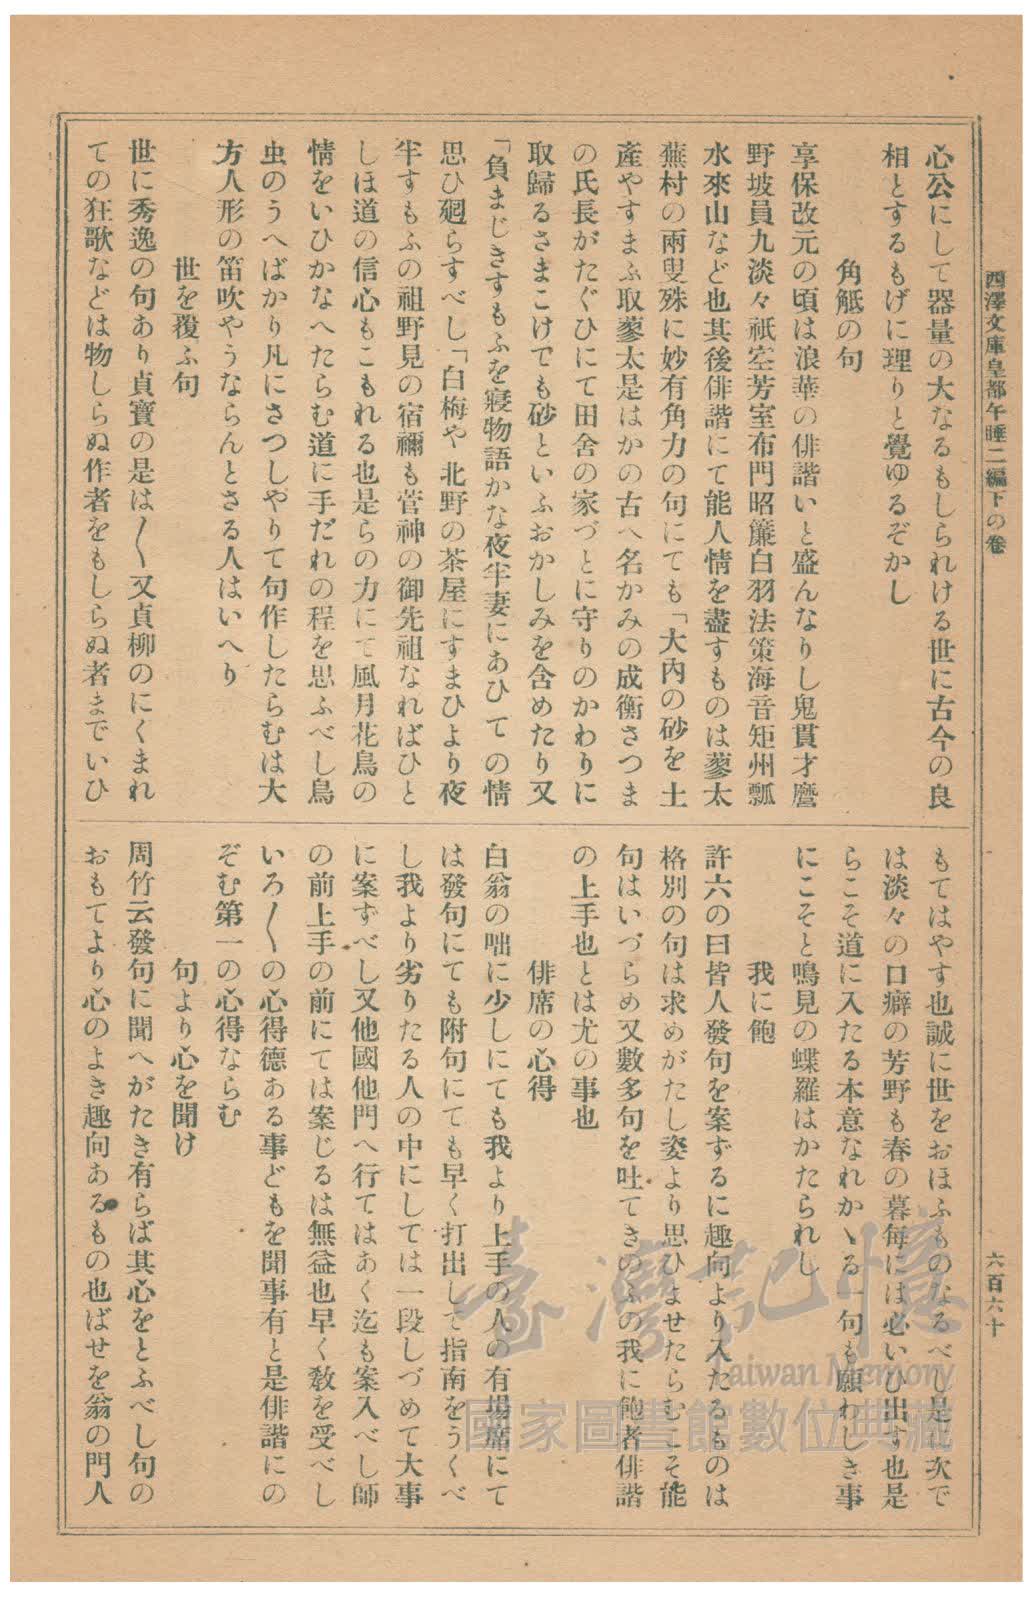 西澤文庫皇都午睡二編下の卷
六百六十
心公にして器量の大なるもしられける世に古今の良
相とするもげに理りと覺ゆるぞかし
角觝の句
享保改元の頃は浪華の俳諧いと盛んなりし鬼貫才麿
野坡員九淡々祇空芳室布門昭簾白羽法策海音矩州瓢
水來山など也其後俳諧にて能人情を盡すものは蓼太
蕪村の兩叟殊に妙有角力の句にても「大内の砂を土
產やすまふ取蓼太是はかの古へ名かみの成衡さつま
の氏長がたぐひにて田舍の家づとに守りのかわりに
取歸るさまこけでも砂といふおかしみを含めたり又
「負まじきすもふを寢物語かな夜半妻にあひての情
思ひ廻らすべし「白梅や北野の茶屋にすまひより夜
半すもふの祖野見の宿禰も菅神の御先祖なればひと
しほ道の信心もこもれる也是らの力にて風月花鳥の
情をいひかなへたらむ道に手だれの程を思ふべし鳥
虫のうへばかり凡にさつしやりて句作したらむは大
方人形の笛吹やうならんとさる人はいへり
世を覆ふ句
世に秀逸の句あり貞寶の是は〱又貞柳のにくまれ
ての狂歌などは物しらぬ作者をもしらぬ者までいひ
もてはやす也誠に世をおほふものなるべし是に次で
は淡々の口癖の芳野も春の暮每には必いひ出す也是
らこそ道に入たる本意なれかゝる一句も願わしき事
にこそと鳴見の蝶羅はかたられし
我に飽
許六の曰皆人發句を案ずるに趣向より入たるものは
格別の句は求めがたし姿より思ひよせたらむこそ能
句はいづらめ又數多句を吐てきのふの我に飽者俳諧
の上手也とは尤の事也
俳席の心得
白翁の咄に少しにても我より上手の人の有場席にて
は發句にても附句にても早く打出して指南をうくべ
し我より劣りたる人の中にしては一段しづめて大事
に案ずべし又他國他門へ行てはあく迄も案入べし師
の前上手の前にては案じるは無益也早く敎を受べし
いろ〱の心得德ある事どもを聞事有と是俳諧にの
ぞむ第一の心得ならむ
句より心を聞け
周竹云發句に聞へがたき有らば其心をとふべし句の
おもてより心のよき趣向あるもの也ばせを翁の門人
臺灣記憶
Taiwan Memory
國家圖書館數位典藏